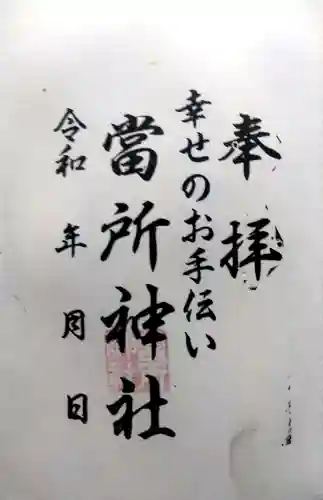 奉拝
幸せのお手伝い
當所神社
令和 年 月 日